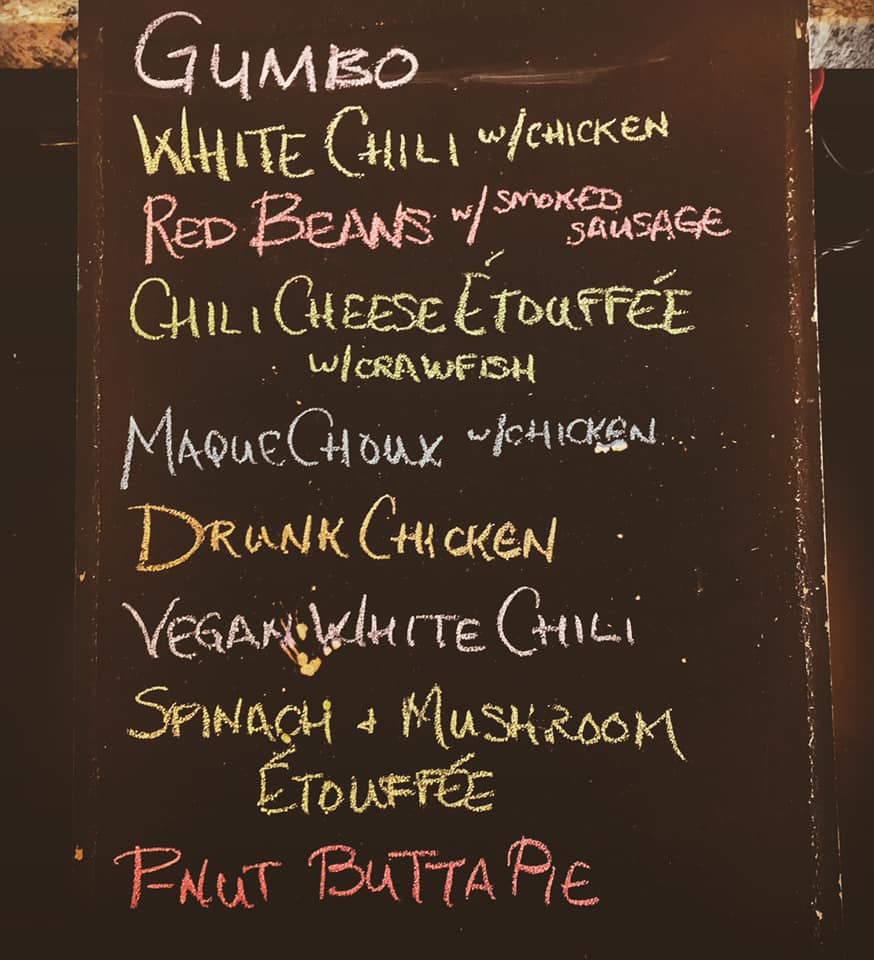 GUMBO
WHITE CHILI w/CHICKEN
RED BEANS w/ SMOKED
SAUSAGE
CHILI CHEESE ÉTOUFFÉE
W/CRAWFISH
MAQUE CHOUX w/CHICKEN
DRUNK CHICKEN
VEGAN WHITE CHILI
SPINACH + MUSHROOM
ÉTOUFFÉE
P-NUT BUTTA PIE